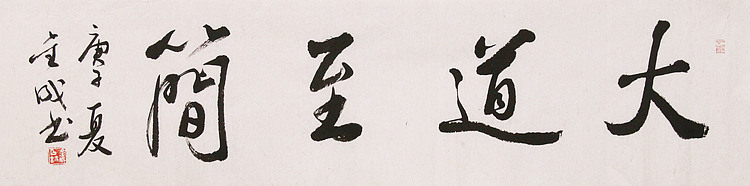 大道至簡
庚子夏
金成书